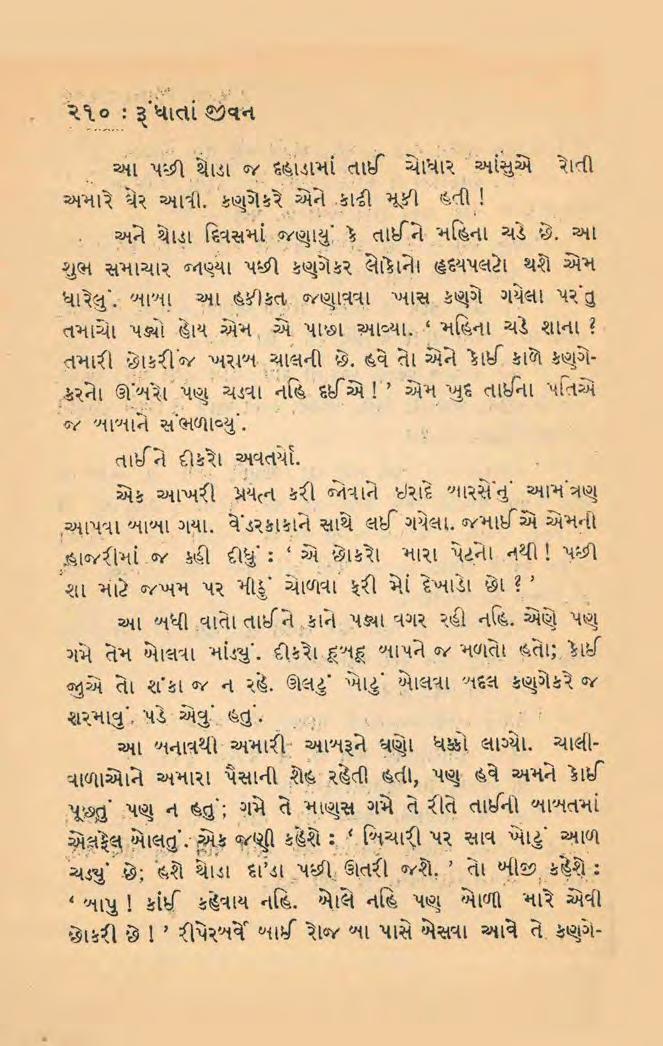 ૨૧૦ : રૂંધાતાં જીવન
આ પછી થોડા જ દહાડામાં તાઈ ચોધાર આંસુએ રોતી
અમારે ઘેર આવી. કણગેકરે એને કાઢી મૂકી હતી !
અને થોડા દિવસમાં જણાયું કે તાઈને મહિના ચડે છે. આ
શુભ સમાચાર જાણ્યા પછી કણગેકર લોકોનો હૃદયપલટો થશે એમ
ધારેલું. બાબા આ હકીકત જણાવવા ખાસ કણગે ગયેલા પરંતુ
તમાચો પડ્યો હોય એમ એ પાછા આવ્યા. ‘ મહિના ચડે શાના ?
તમારી છોકરી જ ખરાબ ચાલની છે. હવે તો એને કોઈ કાળે કણગે-
કરનો ઊંબરો પણ ચડવા નહિ દઈએ ! ’ એમ ખુદ તાઈના પતિએ
જ બાબાને સંભળાવ્યું.
તાઈને દીકરો અવતર્યો.
એક આખરી પ્રયત્ન કરી જોવાને ઇરાદે બારસેંનું આમંત્રણ
આપવા બાબા ગયા. વેંડરકાકાને સાથે લઈ ગયેલા. જમાઈએ એમની
હાજરીમાં જ કહી દીધું : ‘ એ છોકરો મારા પેટનો નથી ! પછી
શા માટે જખમ પર મીઠું ચોળવા ફરી મોં દેખાડો છો ? ’
આ બધી વાતો તાઈને કાને પડ્યા વગર રહી નહિ. એણે પણ
ગમે તેમ બોલવા માંડ્યું. દીકરો હૂબહૂ બાપને જ મળતો હતો; કોઈ
જુએ તો શંકા જ ન રહે. ઊલટું ખોટું બોલવા બદલ કણગેકરે જ
શરમાવું પડે એવું હતું.
આ બનાવથી અમારી આબરૂને ઘણો ધક્કો લાગ્યો. ચાલી-
વાળાઓને અમારા પૈસાની શેહ રહેતી હતી, પણ હવે અમને કોઈ
પૂછતું પણ ન હતું; ગમે તે માણસ ગમે તે રીતે તાઈની બાબતમાં
એલફેલ બોલતું. એક જણી કહેશે : ‘ બિચારી પર સાવ ખોટું આળ
ચડ્યું છે; હશે થોડા દા'ડા પછી ઊતરી જશે. ’ તો બીજી કહેશે :
‘ બાપુ ! કાંઈ કહેવાય નહિ. બોલે નહિ પણ બોળી મારે એવી
છોકરી છે ! ’ રીપેરબર્વે બાઈ રોજ બા પાસે બેસવા આવે તે કણગે-